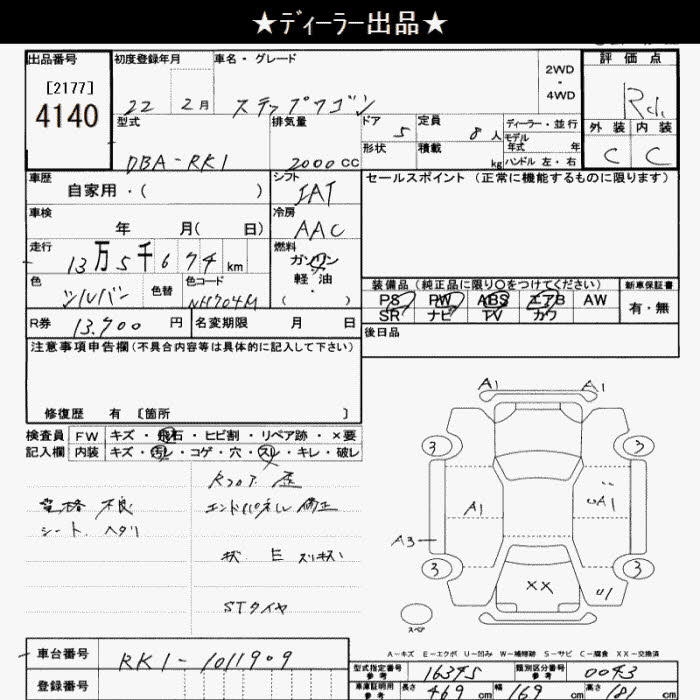 ★ディーラー出品★
出品番号 初度登録年月 車名・グレード 2WD・4WD 評価点
[2177]
4140
22 2月 ステップワゴン
型式 排気量 ドア 5 定員 8人 ディーラー・並行 外装 内装
モデル年式 年
DBA-RK1 2000 CC 形状 積載 kg ハンドル 左・右 C C
車歴 シフト セールスポイント (正常に機能するものに限ります)
自家用・( ) IAT
車検 冷房
年 月( 日) AAC
走行 燃料
13万5千674km ガソリン
軽油
( )
色 色替 色コード 装備品 (純正品に限り○をつけてください) 新車保証書
シルバー NH704M PS PW ABS エアB AW 有・無
SR ナビ TV カワ
R券 13,700 円 名変期限 月 日 後日品
注意事項申告欄 (不具合内容等は具体的に記入して下さい)
修復歴 有 [箇所 ]
検査員 FW キズ・飛石・ヒビ割・リペア跡・×要
記入欄 内装 キズ・汚レ・コゲ・穴・スレ・キレ・破レ
電格 不良
シート ヘタリ
エンドパネル 修正
STタイヤ
A1 A1
3 3
A1 A1
A3
3 3
XX U1
スペア
A-キズ E-エクボ U-凹み W-補修跡 S-サビ C-腐食 XX-交換済
車台番号 RK1-1011909
型式指定番号 参考 16345 類別区分番号 参考 0043
登録番号 車庫証明用 参考 長さ 469 cm 幅 169 cm 高さ 181 cm